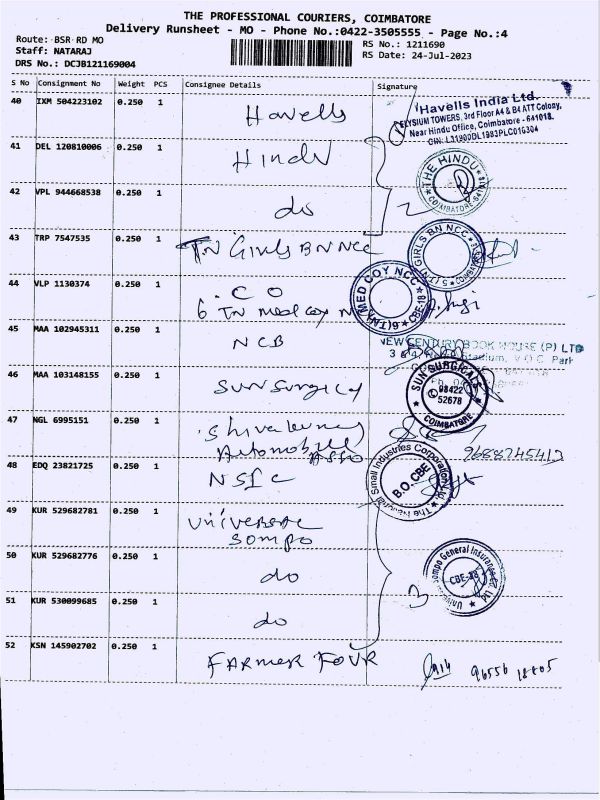 THE PROFESSIONAL COURIERS, COIMBATORE
Delivery Runsheet - MO - Phone No.:0422-3505555 - Page No.:4
Route: BSR RD MO
RS No.: 1211690
Staff: NATARAJ
RS Date: 24-Jul-2023
DRS No.: DCJB121169004
S No Consignment No Weight PCS Consignee Details Signature
40 IXM 504223102 0.250 1 Havells
Havells India Ltd.
ELYSIUM TOWERS, 3rd Floor A4 & B4 ATT Colony,
Near Hindu Office, Coimbatore - 641018.
CIN: L31900DL1983PLC016304
41 DEL 120810006 0.250 1 Hindu
THE HINDU
COIMBATORE-641
42 VPL 944668538 0.250 1 do 2
43 TRP 7547535 0.250 1 TN GIRLS BN NCC
5 (TN) GIRLS BN NCC
44 VLP 1130374 0.250 1 C O
6 TN med coy N
6(TN) MED COY NCC CBE-18
45 MAA 102945311 0.250 1 NCB
NEW CENTURY BOOK HOUSE (P) LTD
Stadium, V.O.C. Park
46 MAA 103148155 0.250 1 SUN Surgical
SUN SURGICALS
98422
52678
COIMBATORE
47 NGL 6995151 0.250 1
Automobile
ASSO
9688245413
48 EDQ 23821725 0.250 1 NSIC
The National Small Industries Corporation Ltd
B.O. CBE
49 KUR 529682781 0.250 1 Universal
Sompo
50 KUR 529682776 0.250 1 do
Universal Sompo General Insurance
CBE-18
51 KUR 530099685 0.250 1 do 3
52 KSN 145902702 0.250 1 FARMER FOUR